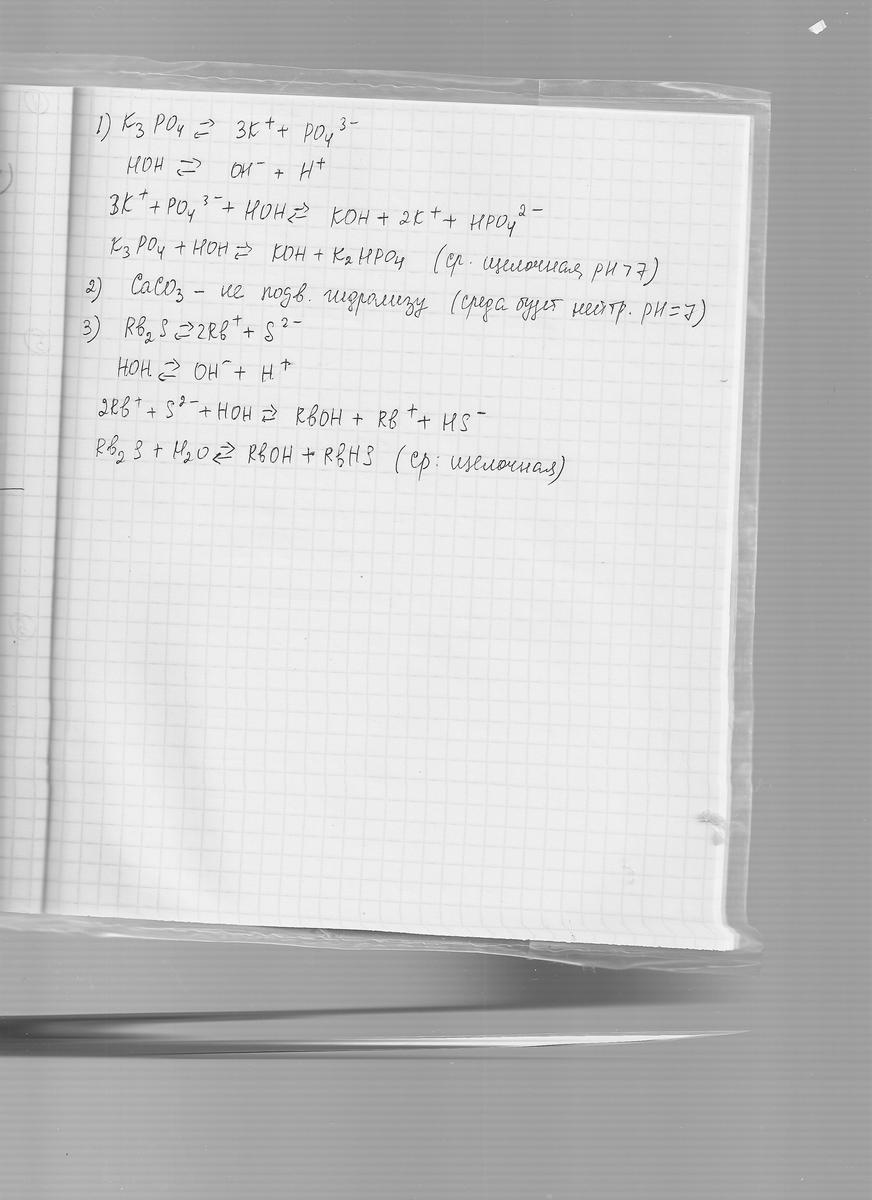 1) K₃PO₄ ⇄ 3K⁺ + PO₄³⁻
HOH ⇄ OH⁻ + H⁺
3K⁺ + PO₄³⁻ + HOH ⇄ KOH + 2K⁺ + HPO₄²⁻
K₃PO₄ + HOH ⇄ KOH + K₂HPO₄ (ср. щелочная, pH > 7)
2) CaCO₃ – не подв. гидролизу (среда будет нейтр. pH = 7)
3) Rb₂S ⇄ 2Rb⁺ + S²⁻
HOH ⇄ OH⁻ + H⁺
2Rb⁺ + S²⁻ + HOH ⇄ RbOH + Rb⁺ + HS⁻
Rb₂S + H₂O ⇄ RbOH + RbHS (ср: щелочная)